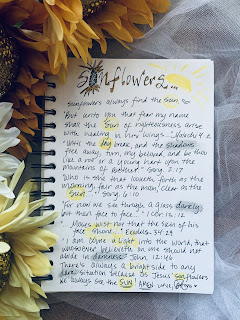 Sunflowers
Sunflowers always find the Sun, so
"But unto you that fear my name
shall the Sun of righteousness arise
with healing in his wings..." Malachi 4:2
"Until the day break, and the shadows
flee away, turn, my beloved, and be thou
like a roe or a young hart upon the
mountains of Bether." Song. 2:17
"Who is she that looketh forth as the
morning, fair as the moon, clear as the
Sun..." Song. 6:10
"For now we see through a glass darkly;
but then face to face..." 1 Cor. 13:12
"...Moses wist not that the skin of his
face shone..." Exodus 34:29
"I am come a light into the world, that
whosoever believeth on me should not
abide in darkness." John 12:46
There's always a bright side to any
dark situation because as Jesus' sunflowers
we always see the SUN. AMEN